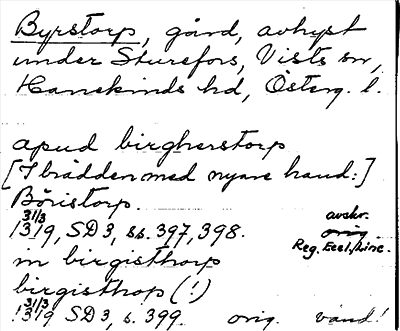 Byrstorp, gård, avhyst
under Sturefors, Vists sn,
Hanekinds hd, Österg. l.
apud birgherstorp
[I brädden med nyare hand:]
Böristorp.
31/3 1319, SD 3, ss. 397, 398. avskr. orig. Reg. Eccl. Linc.
in birgisthorp
birgisthop (!)
31/3 1319 SD 3, s. 399. orig. vänd!